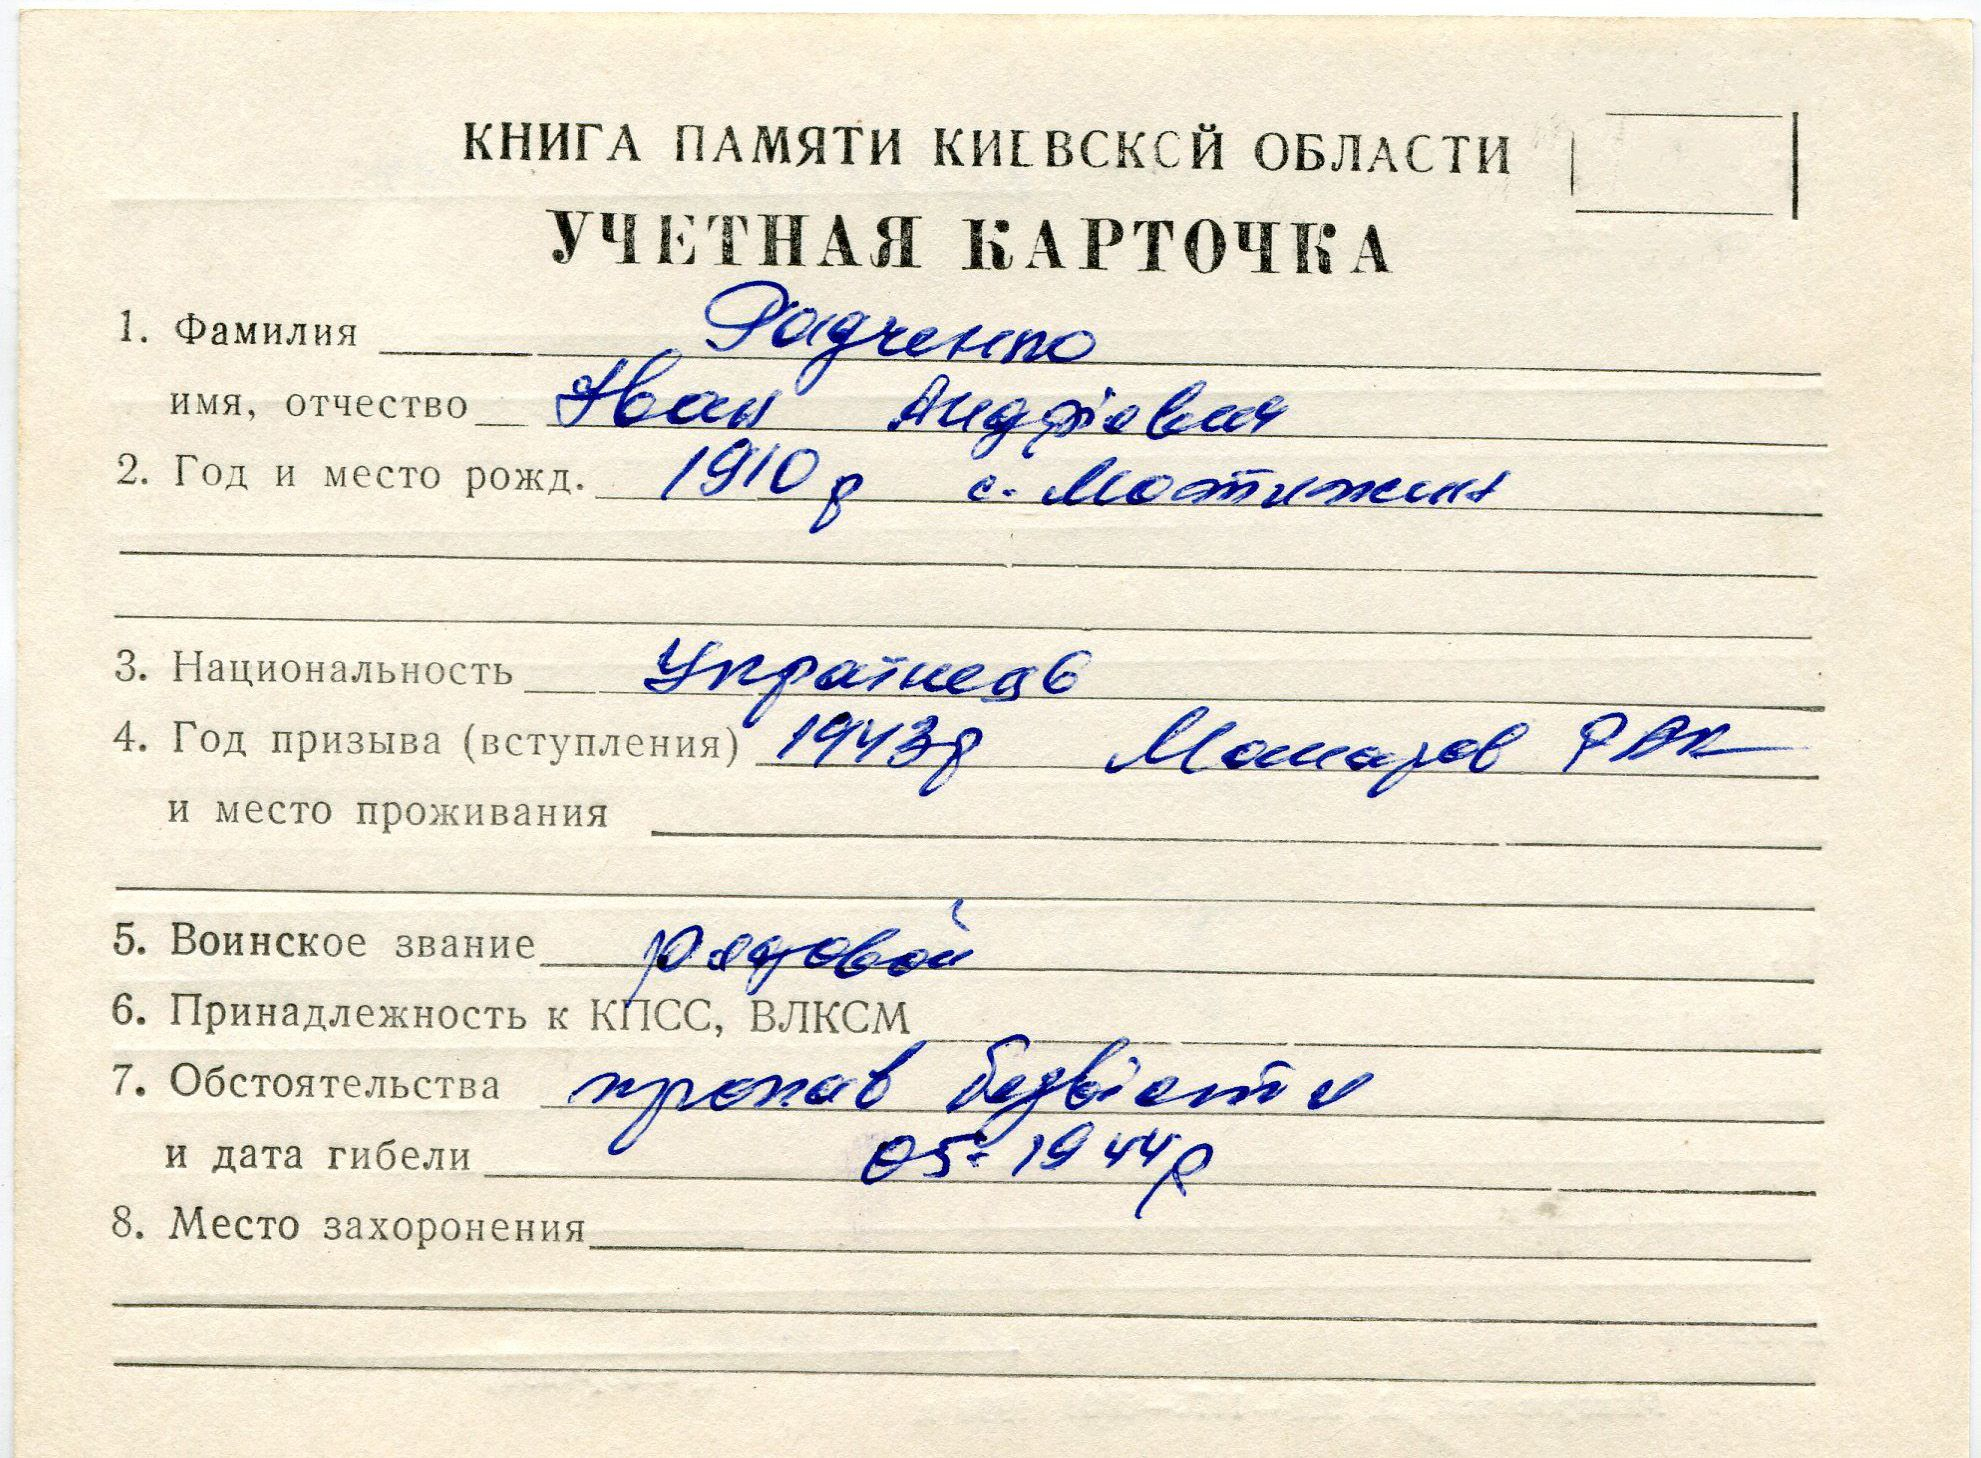 КНИГА ПАМЯТИ КИЕВСКОЙ ОБЛАСТИ
УЧЕТНАЯ КАРТОЧКА
1. Фамилия Радченко
имя, отчество Іван Андріевич
2. Год и место рожд. 1910р с. Мотижин
3. Национальность Українець
4. Год призыва (вступления) 1943р Макаров РВК
и место проживания
5. Воинское звание рядовой
6. Принадлежность к КПСС, ВЛКСМ
7. Обстоятельства пропав безвісти
и дата гибели 05.1944р
8. Место захоронения